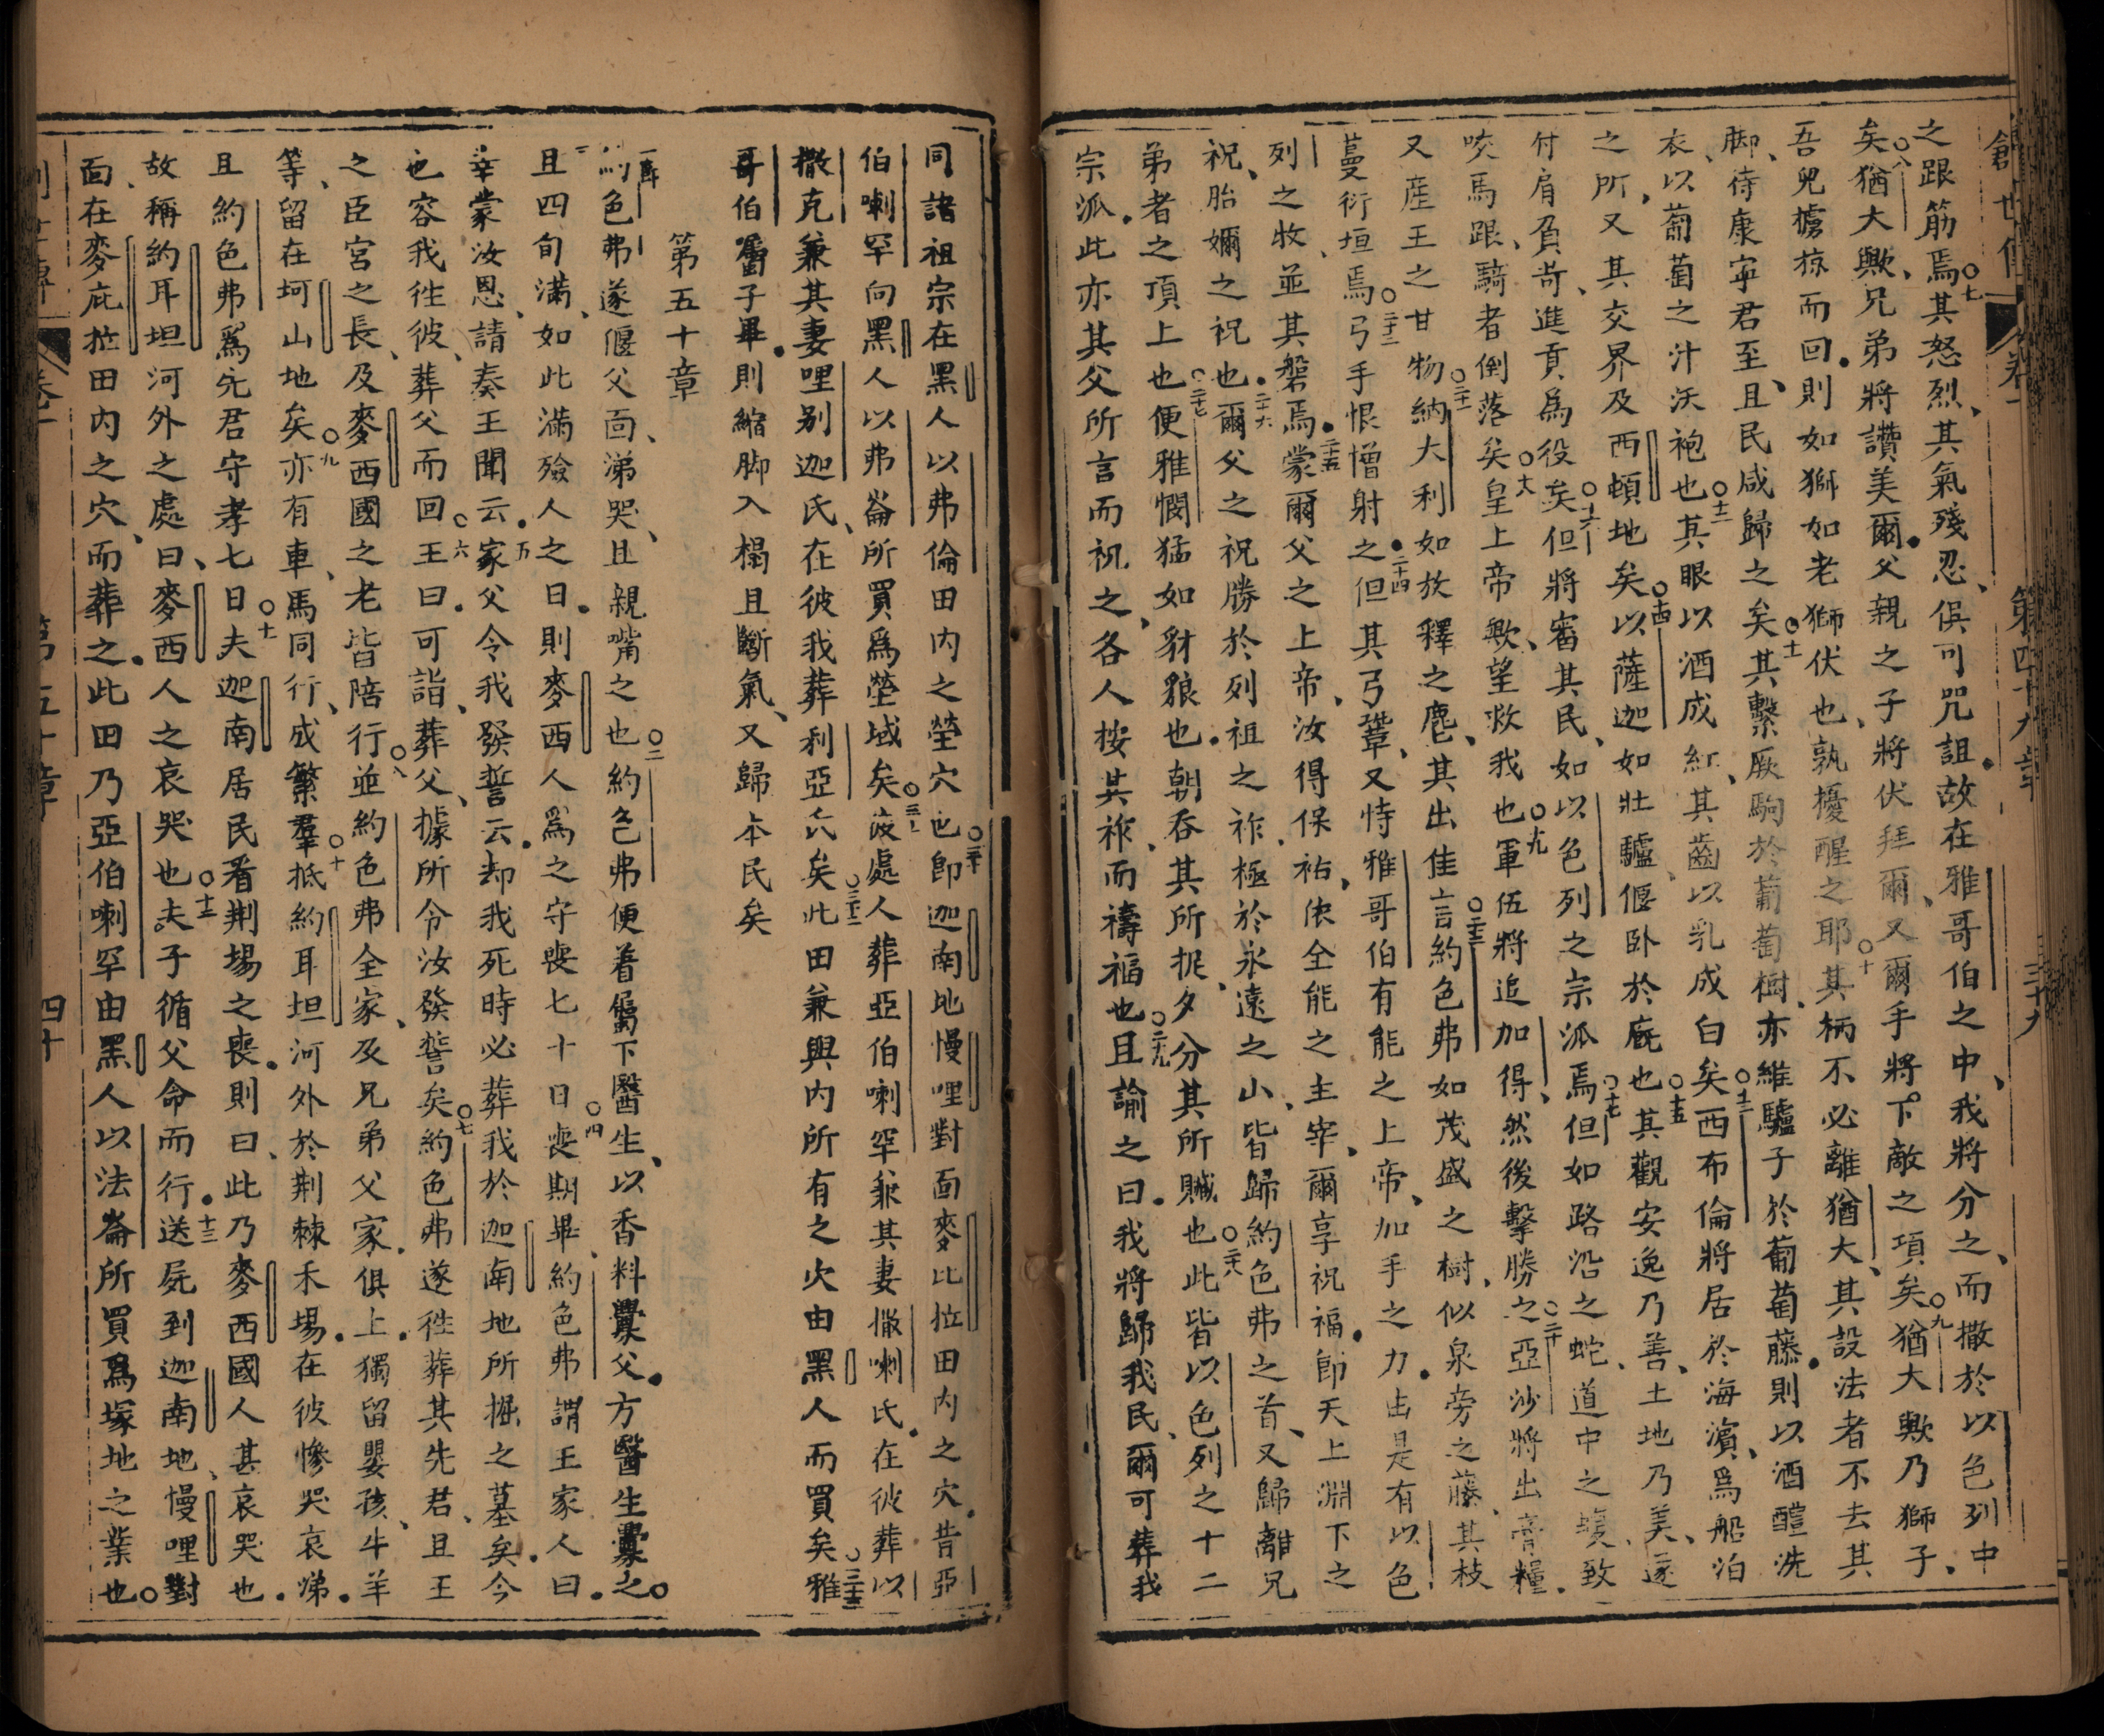 創世傳 卷一 第四十九章 三十九
之跟筋焉○七其怒烈、其氣殘忍、俱可咒詛、故在雅哥伯之中、我將分之、而撒於以色列中
矣○八猶大歟、兄弟將讚美爾、父親之子將伏拜爾、又爾手將下敵之項矣○九猶大歟乃獅子、
吾兒擄掠而回、則如獅如老獅伏也、孰擾醒之耶○十其柄不必離猶大、其設法者不去其
脚、待康寧君至、且民咸歸之矣○十一其繫厥駒於葡萄樹、亦維驢子於葡萄藤、則以酒醴洗
衣、以葡萄之汁沃袍也○十二其眼以酒成紅、其齒以乳成白矣○十三西布倫將居於海濱、爲船泊
之所、又其交界及西頓地矣○十四以薩迦如壯驢偃卧於廐也○十五其觀安逸乃善、土地乃美、遂
付肩負苛、進貢爲役矣○十六但將審其民、如以色列之宗派焉○十七但如路沿之蛇、道中之蝮、致
咬馬跟、騎者倒落矣○十八皇上帝歟、望救我也○十九軍伍將追加得、然後擊勝之○二十亞沙將出膏糧、
又產王之甘物○二十一納大利如放釋之麀、其出佳言○二十二約色弗如茂盛之樹、似泉旁之藤、其枝
蔓衍垣焉○二十三弓手恨憎射之○二十四但其弓鞏、又恃雅哥伯有能之上帝、加手之力、由是有以色
列之牧並其磐焉○二十五蒙爾父之上帝、汝得保祐、依全能之主宰、爾享祝福、卽天上淵下之
祝、胎嬭之祝也○二十六爾父之祝勝於列祖之祚、極於永遠之山、皆歸約色弗之首、又歸離兄
弟者之頂上也○二十七便雅憫猛如豺狼也、朝吞其所抳、夕分其所贓也○二十八此皆以色列之十二
宗派、此亦其父所言而祝之、各人按其祚而禱福也○二十九且諭之曰、我將歸我民、爾可葬我
同諸祖宗在黑人以弗倫田内之塋穴也○三十卽迦南地慢哩對面麥比拉田内之穴、昔亞
伯喇罕向黑人以弗崙所買爲塋域矣○三十一彼處人葬亞伯喇罕兼其妻撒喇氏、在彼葬以
撒克兼其妻哩别迦氏、在彼我葬利亞氏矣○三十二此田兼與内所有之穴由黑人而買矣○三十三雅
哥伯囑子畢、則縮脚入榻且斷氣、又歸本民矣
第五十章
一節約色弗遂偃父面、涕哭、且親嘴之也○二約色弗便着屬下醫生、以香料釁父、方醫生釁之○
三且四旬滿、如此滿殮人之日、則麥西人爲之守喪七十日○四喪期畢、約色弗謂王家人曰、
幸蒙汝恩、請奏王聞云、○五家父令我發誓云、却我死時必葬我於迦南地所掘之墓矣、今
也容我徃彼、葬父而回○六王曰、可詣葬父、據所令汝發誓矣○七約色弗遂徃葬其先君、且王
之臣宮之長、及麥西國之老皆陪行○八並約色弗全家、及兄弟父家、俱上、獨留嬰孩、牛羊
等、留在坷山地矣○九亦有車、馬同行、成繁羣○十抵約耳坦河外於荆棘禾場、在彼慘哭哀涕、
且約色弗爲先君守孝七日○十一夫迦南居民看荆場之喪、則曰、此乃麥西國人甚哀哭也、
故稱約耳坦河外之處曰、麥西人之哀哭也○十二夫子循父命而行、○十三送屍到迦南地、慢哩對
面、在麥庇拉田内之穴、而葬之、此田乃亞伯喇罕由黑人以法崙所買爲塚地之業也○
創世傳 卷一 第五十章 四十